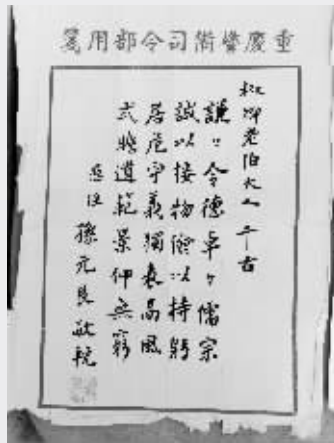 重慶警備司令部用箋
椒卿老伯大人千古
謙謙令德卓卓儒宗
誠以接物儉以持躬
居危守義獨表高風
式瞻道範景仰無窮
愚侄
孫元良敬輓